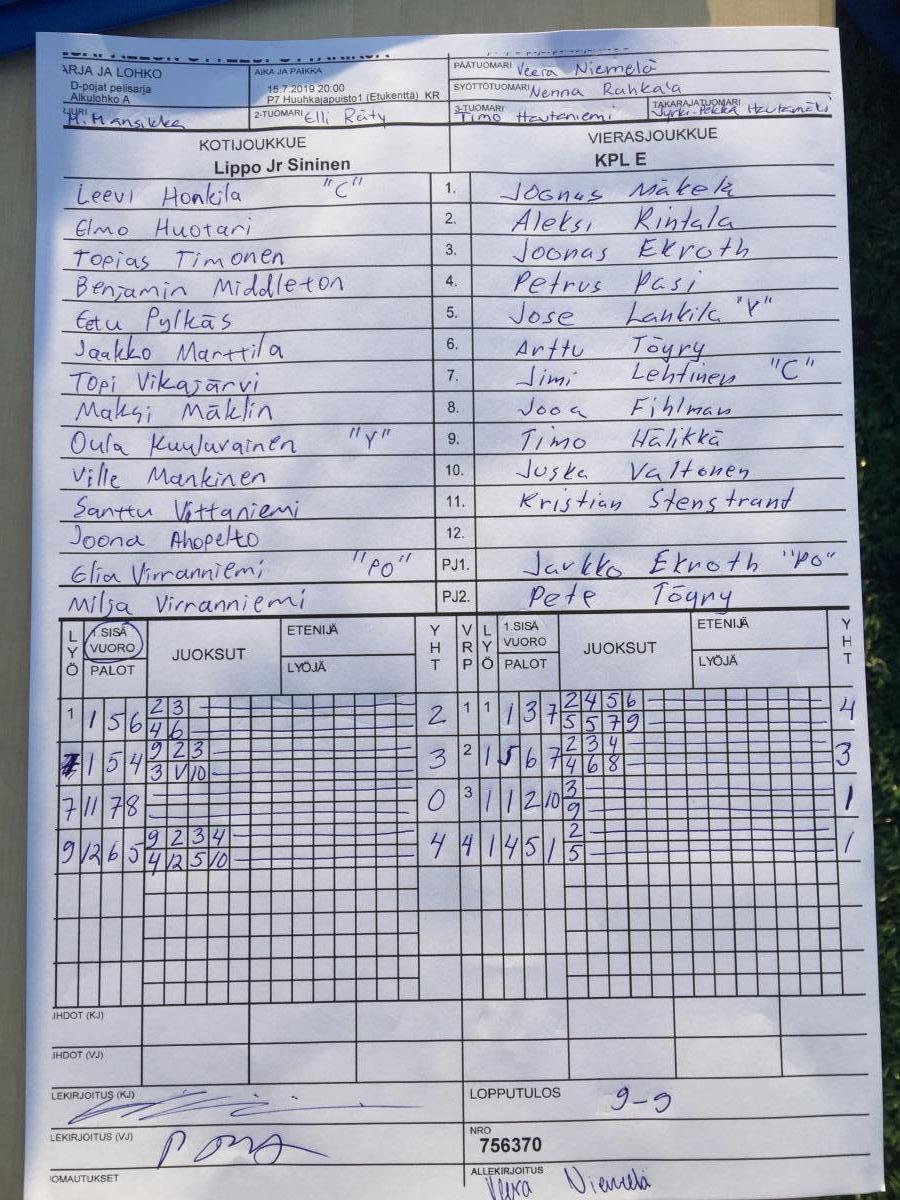 ARJA JA LOHKO
D-pojat pelisarja
Alkulohko A
AIKA JA PAIKKA
15.7.2019 20:00
P7 Huuhkajapuisto1 (Etukenttä) KR
PÄÄTUOMARI Veera Niemelä
SYÖTTÖTUOMARI Nenna Rahkala
M. Mansikka
2-TUOMARI Elli Räty
3-TUOMARI Timo Hautaniemi
TAKARAJATUOMARI Jyrki-Pekka Hautamäki
KOTIJOUKKUE
Lippo Jr Sininen
VIERASJOUKKUE
KPL E
Leevi Honkila "C" 1. Joonas Mäkelä
Elmo Huotari 2. Aleksi Rintala
Topias Timonen 3. Joonas Ekroth
Benjamin Middleton 4. Petrus Pasi
Eetu Pylkäs 5. Jose Lankila "Y"
Jaakko Marttila 6. Arttu Töyry
Topi Vikajärvi 7. Jimi Lehtinen "C"
Maksi Mäklin 8. Jooa Fihlman
Oula Kuuluvainen "Y" 9. Timo Hälikkä
Ville Mankinen 10. Juska Valtonen
Santtu Vittaniemi 11. Kristian Stenstrand
Joona Ahopelto 12.
Elia Virranniemi "PO" PJ1. Jarkko Ekroth "PO"
Milja Virranniemi PJ2. Pete Töyry
LYÖ 1.SISÄ VUORO PALOT JUOKSUT ETENIJÄ LYÖJÄ YHT VRP LYÖ 1.SISÄ VUORO PALOT JUOKSUT ETENIJÄ LYÖJÄ YHT
1 1 5 6 2 3 2 1 1 1 3 7 2 4 5 6 4
4 6 5 5 7 9
1 5 4 9 2 3 3 2 1 5 6 7 2 3 4 3
3 V 10 4 6 8
7 11 7 8 0 3 1 1 2 10 3 1
9
9 12 6 5 9 2 3 4 4 4 1 4 5 1 2 1
4 12 5 10 5
IHDOT (KJ)
IHDOT (VJ)
LEKIRJOITUS (KJ)
LOPPUTULOS 9-9
LEKIRJOITUS (VJ)
NRO
756370
OMAUTUKSET
ALLEKIRJOITUS
Veera Niemelä